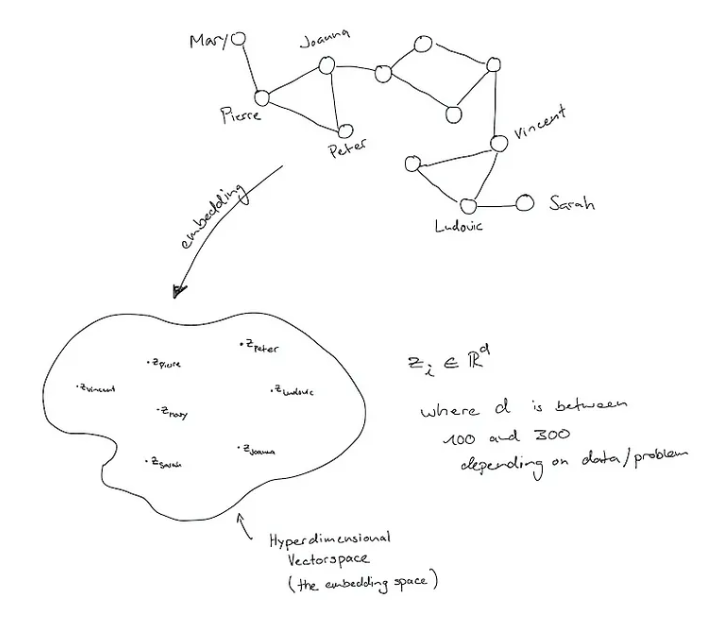 Mary
Joanna
Pierre
Peter
Vincent
Sarah
Ludovic
embedding
z_Peter
z_Pierre
z_Vincent
z_Ludovic
z_Mary
z_Joanna
z_Sarah
z_i ∈ ℝ^d
where d is between
100 and 300
depending on data/problem
Hyperdimensional
Vectorspace
(the embedding space)